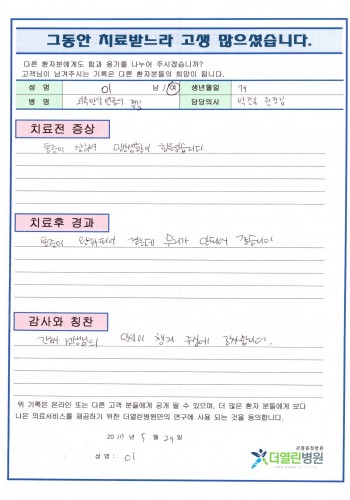 그동안 치료받느라 고생 많으셨습니다.
다른 환자분에게도 힘과 용기를 나누어 주시겠습니까?
고객님이 남겨주시는 기록은 다른 환자분들의 희망이 됩니다.
성 명 이 남 / 여 생년월일 79
병 명 담당의사 원장님
치료전 증상
통증이 심하여 일상생활이 힘들었습니다
치료후 경과
통증이 완화되어 걷는데 무리가 안되어 좋습니다.
감사와 칭찬
간호사 선생님의 많이 챙겨 주심에 감사합니다.
위 기록은 온라인 또는 다른 고객 분들에게 공개 될 수 있으며, 더 많은 환자 분들에게 보다
나은 의료서비스를 제공하기 위한 더열린병원만의 연구에 사용 되는 것을 동의합니다.
2017 년 5 월 29 일
성 명 : 이
더열린병원